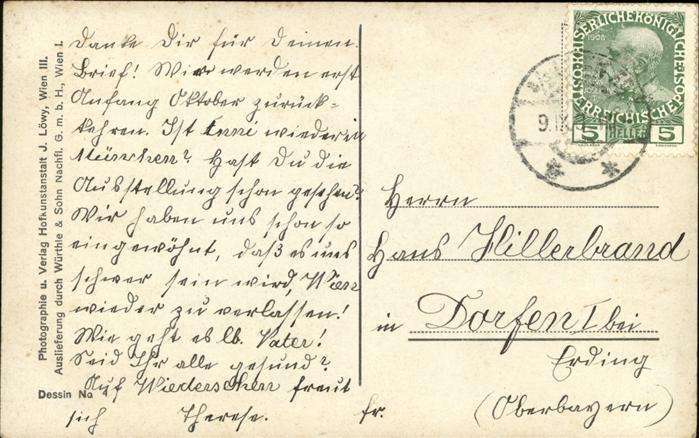 Danke Dir für Deinen
Brief! Wir werden erst
Anfang Oktober zurück-
kehren. Ist Anni wieder in
München? Hast Du die
Ausstellung schon gesehen?
Wir haben uns schon so
eingewöhnt, daß es uns
schwer sein wird, Wien
wieder zu verlassen!
Wie geht es lb. Vater!
Seid Ihr alle gesund?
Auf Wiedersehen freut
sich Therese. fr.
Photographie u. Verlag Hofkunstanstalt J. Löwy, Wien III.
Auslieferung durch Würthle & Sohn Nachfl. G. m. b. H., Wien I.
Dessin No
KAISERLICHE KÖNIGLICHE
ÖSTERREICHISCHE POST
1908
5 HELLER 5
9.IX
Herrn
Hans Hillerbrand
in Dorfen I bei
Erding
(Oberbayern)